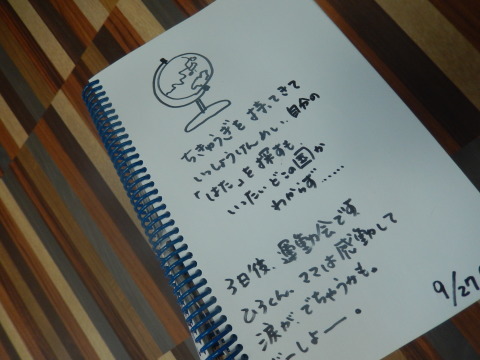 ちきゅうぎを持ってきて
いっしょうけんめい、自分の
「はた」を探すも、
いったいどこの国か
わからず……
3日後、運動会です
ひろくん、ママは感動して
涙がでちゃうかも。
でしょー。
9/27